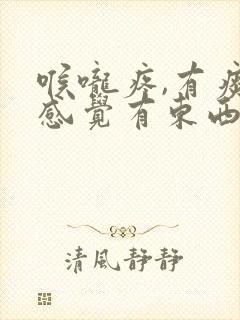 喉嚨疼,有痰
感覺有東西
清風靜靜